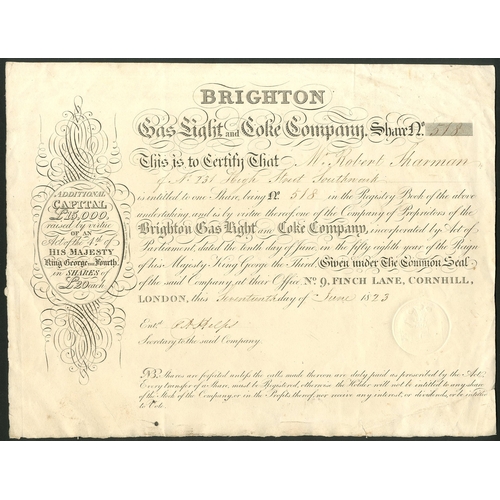 BRIGHTON
Gas Light and Coke Company, Share No. 518
This is to Certify That Mr. Robert Sharman
of No. 231 High Street Southwark
is entitled to one Share, being No. 518 in the Registry Book of the above
undertaking, and is by virtue thereof, one of the Company of Proprietors of the
Brighton Gas Light and Coke Company, incorporated by Act of
Parliament, dated the tenth day of June, in the fifty eighth year of the Reign
of his Majesty King George the Third, Given under The Common Seal
of the said Company, at their Office No. 9, FINCH LANE, CORNHILL,
LONDON, this Seventeenth day of June 1823
Entd.
Secretary to the said Company.
NB. Shares are forfeited unless the calls made thereon are duly paid as prescribed by the Act.
Every transfer of a Share must be Registered, otherwise the Holder will not be entitled to any share
of the Stock of the Company, or in the Profits thereof, nor receive any interest, or dividends, or be entitled
to Vote.
ADDITIONAL
CAPITAL
£15,000,
raised by virtue
OF AN
Act of the 4th of
HIS MAJESTY
King George the Fourth,
in SHARES of
£20 each.